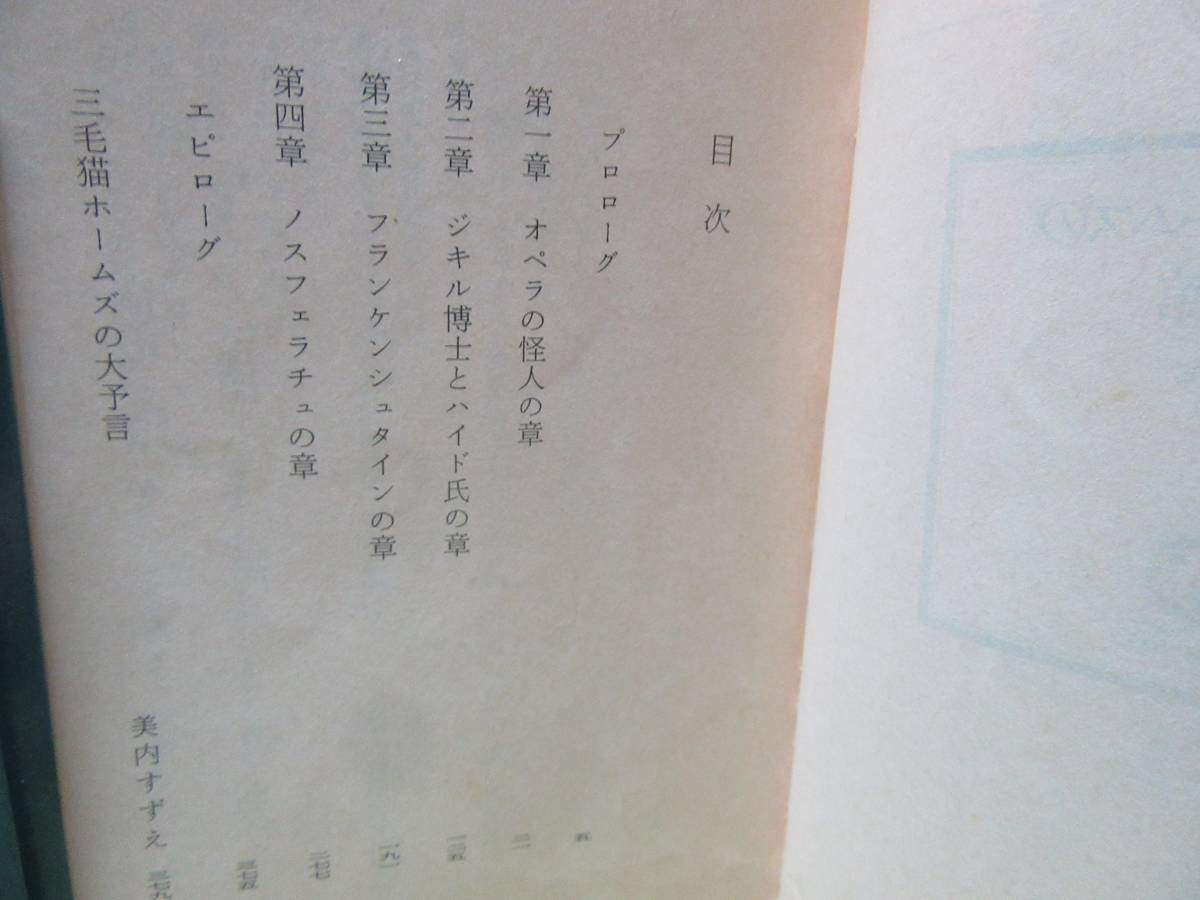 目次
プロローグ 五
第一章 オペラの怪人の章 二一
第二章 ジキル博士とハイド氏の章 一二五
第三章 フランケンシュタインの章 一九一
第四章 ノスフェラチュの章 二七七
エピローグ 三七五
三毛猫ホームズの大予言 美内すずえ 三七九